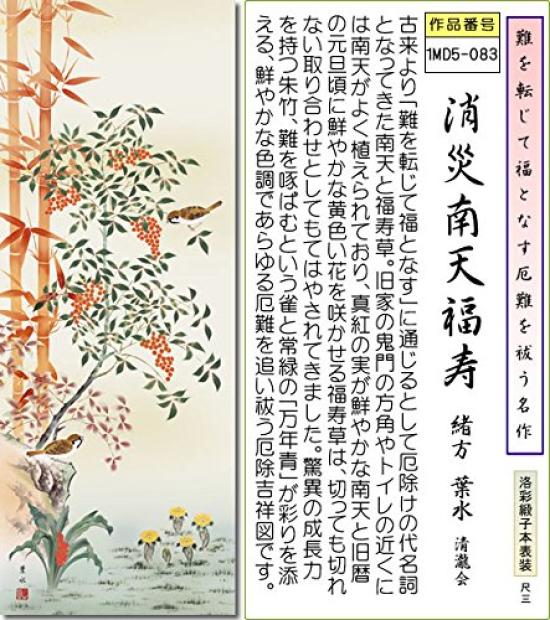 難を転じて福となす厄難を祓う名作
洛彩緞子本表装 尺三
消災南天福寿 緒方 葉水 清瀧会
作品番号
1MD5-083
古来より「難を転じて福となす」に通じるとして厄除けの代名詞
となってきた南天と福寿草。旧家の鬼門の方角やトイレの近くに
は南天がよく植えられており、真紅の実が鮮やかな南天と旧暦
の元旦頃に鮮やかな黄色い花を咲かせる福寿草は、切っても切れ
ない取り合わせとしてもてはやされてきました。驚異の成長力
を持つ朱竹、難を啄ばむという雀と常緑の「万年青」が彩りを添
える、鮮やかな色調であらゆる厄難を追い祓う厄除吉祥図です。
葉水